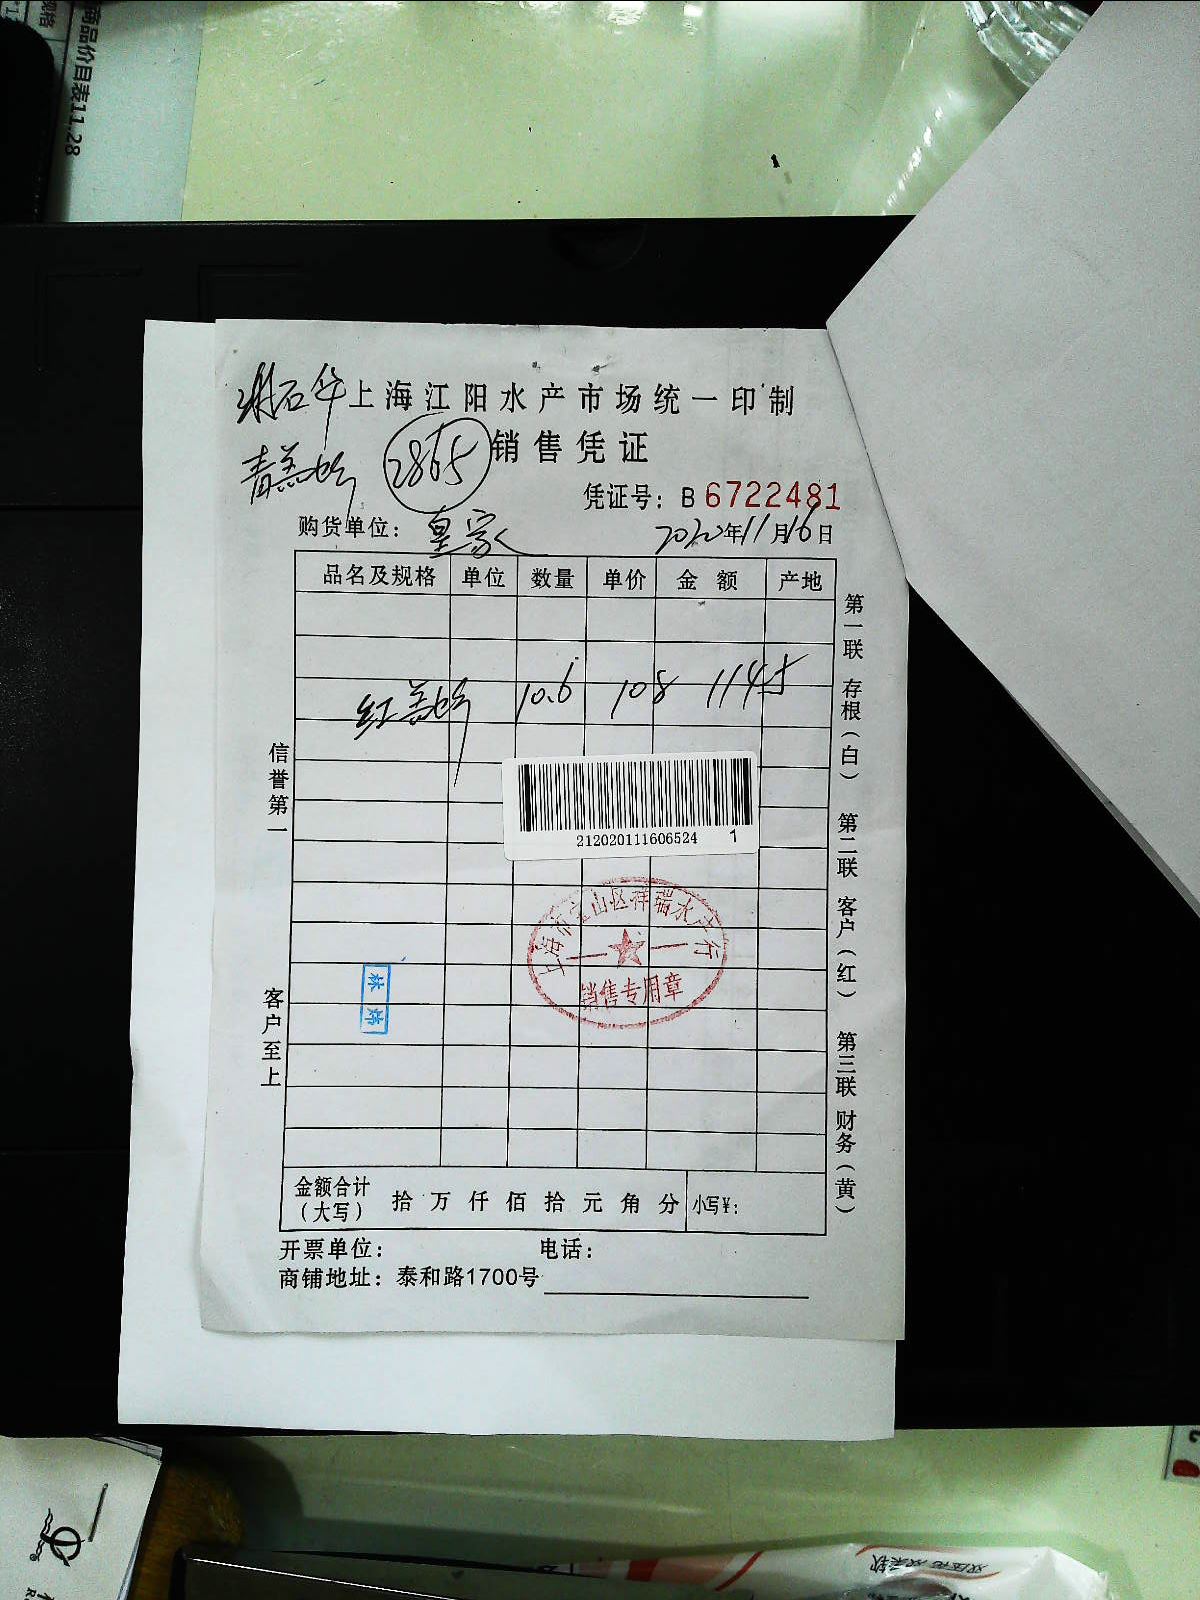 商品价目表11.28
规格
谢石华 上海江阳水产市场统一印制
青羔蚧 2865 销售凭证
凭证号：B 6722481
购货单位：皇家 2020年11月16日
品名及规格 单位 数量 单价 金额 产地
红羔蚧 10.6 108 1145
212020111606524 1
上海市宝山区祥瑞水产行
销售专用章
信誉第一
客户至上
第一联 存根（白） 第二联 客户（红） 第三联 财务（黄）
金额合计（大写） 拾 万 仟 佰 拾 元 角 分 小写¥：
开票单位： 电话：
商铺地址：泰和路1700号